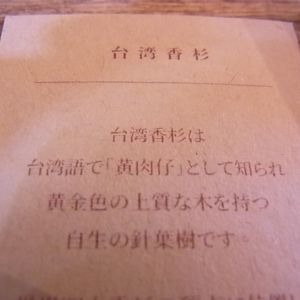 台湾香杉
台湾香杉は
台湾語で「黄肉仔」として知られ
黄金色の上質な木を持つ
自生の針葉樹です